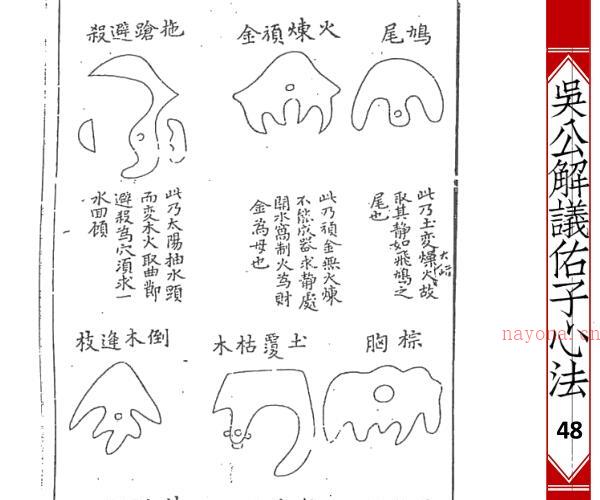 鳩尾
火煉頑金
拖蹌避殺
此乃土變燥火故
取其静如飛鳩之
尾也
此乃頑金無火煉
不能成器求静處
開水窩制火為財
金為母也
此乃太陽抽水頭
而变木火取曲即
避殺為穴須求一
水回顧
棕胸
土覆枯木
倒木逢枝
吳公解議佑子心法
48
nayona.cn